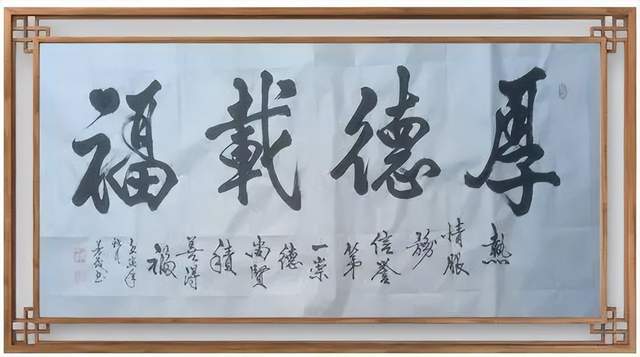 厚德載福
熱情服務信誉第一崇德尚賢積善得福